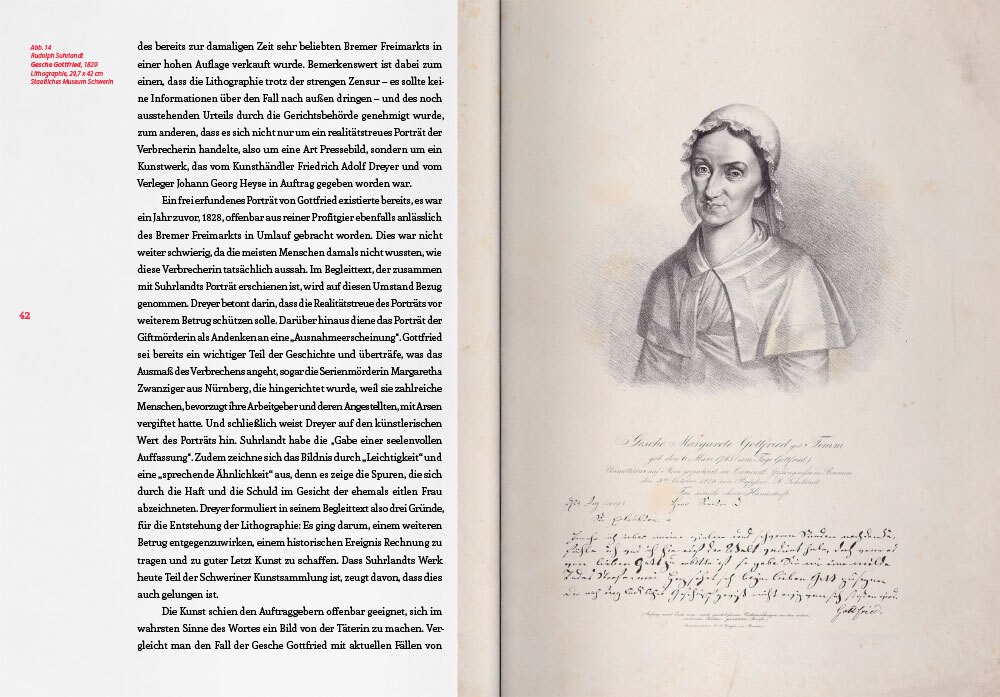 Abb. 14
Rudolph Suhrlandt
Gesche Gottfried, 1829
Lithographie, 29,7 x 42 cm
Staatliches Museum Schwerin
42
des bereits zur damaligen Zeit sehr beliebten Bremer Freimarkts in
einer hohen Auflage verkauft wurde. Bemerkenswert ist dabei zum
einen, dass die Lithographie trotz der strengen Zensur – es sollte kei-
ne Informationen über den Fall nach außen dringen – und des noch
ausstehenden Urteils durch die Gerichtsbehörde genehmigt wurde,
zum anderen, dass es sich nicht nur um ein realitätstreues Porträt der
Verbrecherin handelte, also um eine Art Pressebild, sondern um ein
Kunstwerk, das vom Kunsthändler Friedrich Adolf Dreyer und vom
Verleger Johann Georg Heyse in Auftrag gegeben worden war.
Ein frei erfundenes Porträt von Gottfried existierte bereits, es war
ein Jahr zuvor, 1828, offenbar aus reiner Profitgier ebenfalls anlässlich
des Bremer Freimarkts in Umlauf gebracht worden. Dies war nicht
weiter schwierig, da die meisten Menschen damals nicht wussten, wie
diese Verbrecherin tatsächlich aussah. Im Begleittext, der zusammen
mit Suhrlandts Porträt erschienen ist, wird auf diesen Umstand Bezug
genommen. Dreyer betont darin, dass die Realitätstreue des Porträts vor
weiterem Betrug schützen solle. Darüber hinaus diene das Porträt der
Giftmörderin als Andenken an eine „Ausnahmeerscheinung“. Gottfried
sei bereits ein wichtiger Teil der Geschichte und überträfe, was das
Ausmaß des Verbrechens angeht, sogar die Serienmörderin Margaretha
Zwanziger aus Nürnberg, die hingerichtet wurde, weil sie zahlreiche
Menschen, bevorzugt ihre Arbeitgeber und deren Angestellten, mit Arsen
vergiftet hatte. Und schließlich weist Dreyer auf den künstlerischen
Wert des Porträts hin. Suhrlandt habe die „Gabe einer seelenvollen
Auffassung“. Zudem zeichne sich das Bildnis durch „Leichtigkeit“ und
eine „sprechende Ähnlichkeit“ aus, denn es zeige die Spuren, die sich
durch die Haft und die Schuld im Gesicht der ehemals eitlen Frau
abzeichneten. Dreyer formuliert in seinem Begleittext also drei Gründe,
für die Entstehung der Lithographie: Es ging darum, einem weiteren
Betrug entgegenzuwirken, einem historischen Ereignis Rechnung zu
tragen und zu guter Letzt Kunst zu schaffen. Dass Suhrlandts Werk
heute Teil der Schweriner Kunstsammlung ist, zeugt davon, dass dies
auch gelungen ist.
Die Kunst schien den Auftraggebern offenbar geeignet, sich im
wahrsten Sinne des Wortes ein Bild von der Täterin zu machen. Ver-
gleicht man den Fall der Gesche Gottfried mit aktuellen Fällen von
Gesche Margarete Gottfried geb. Timm
geb. den 6. März 1785
Gottfried